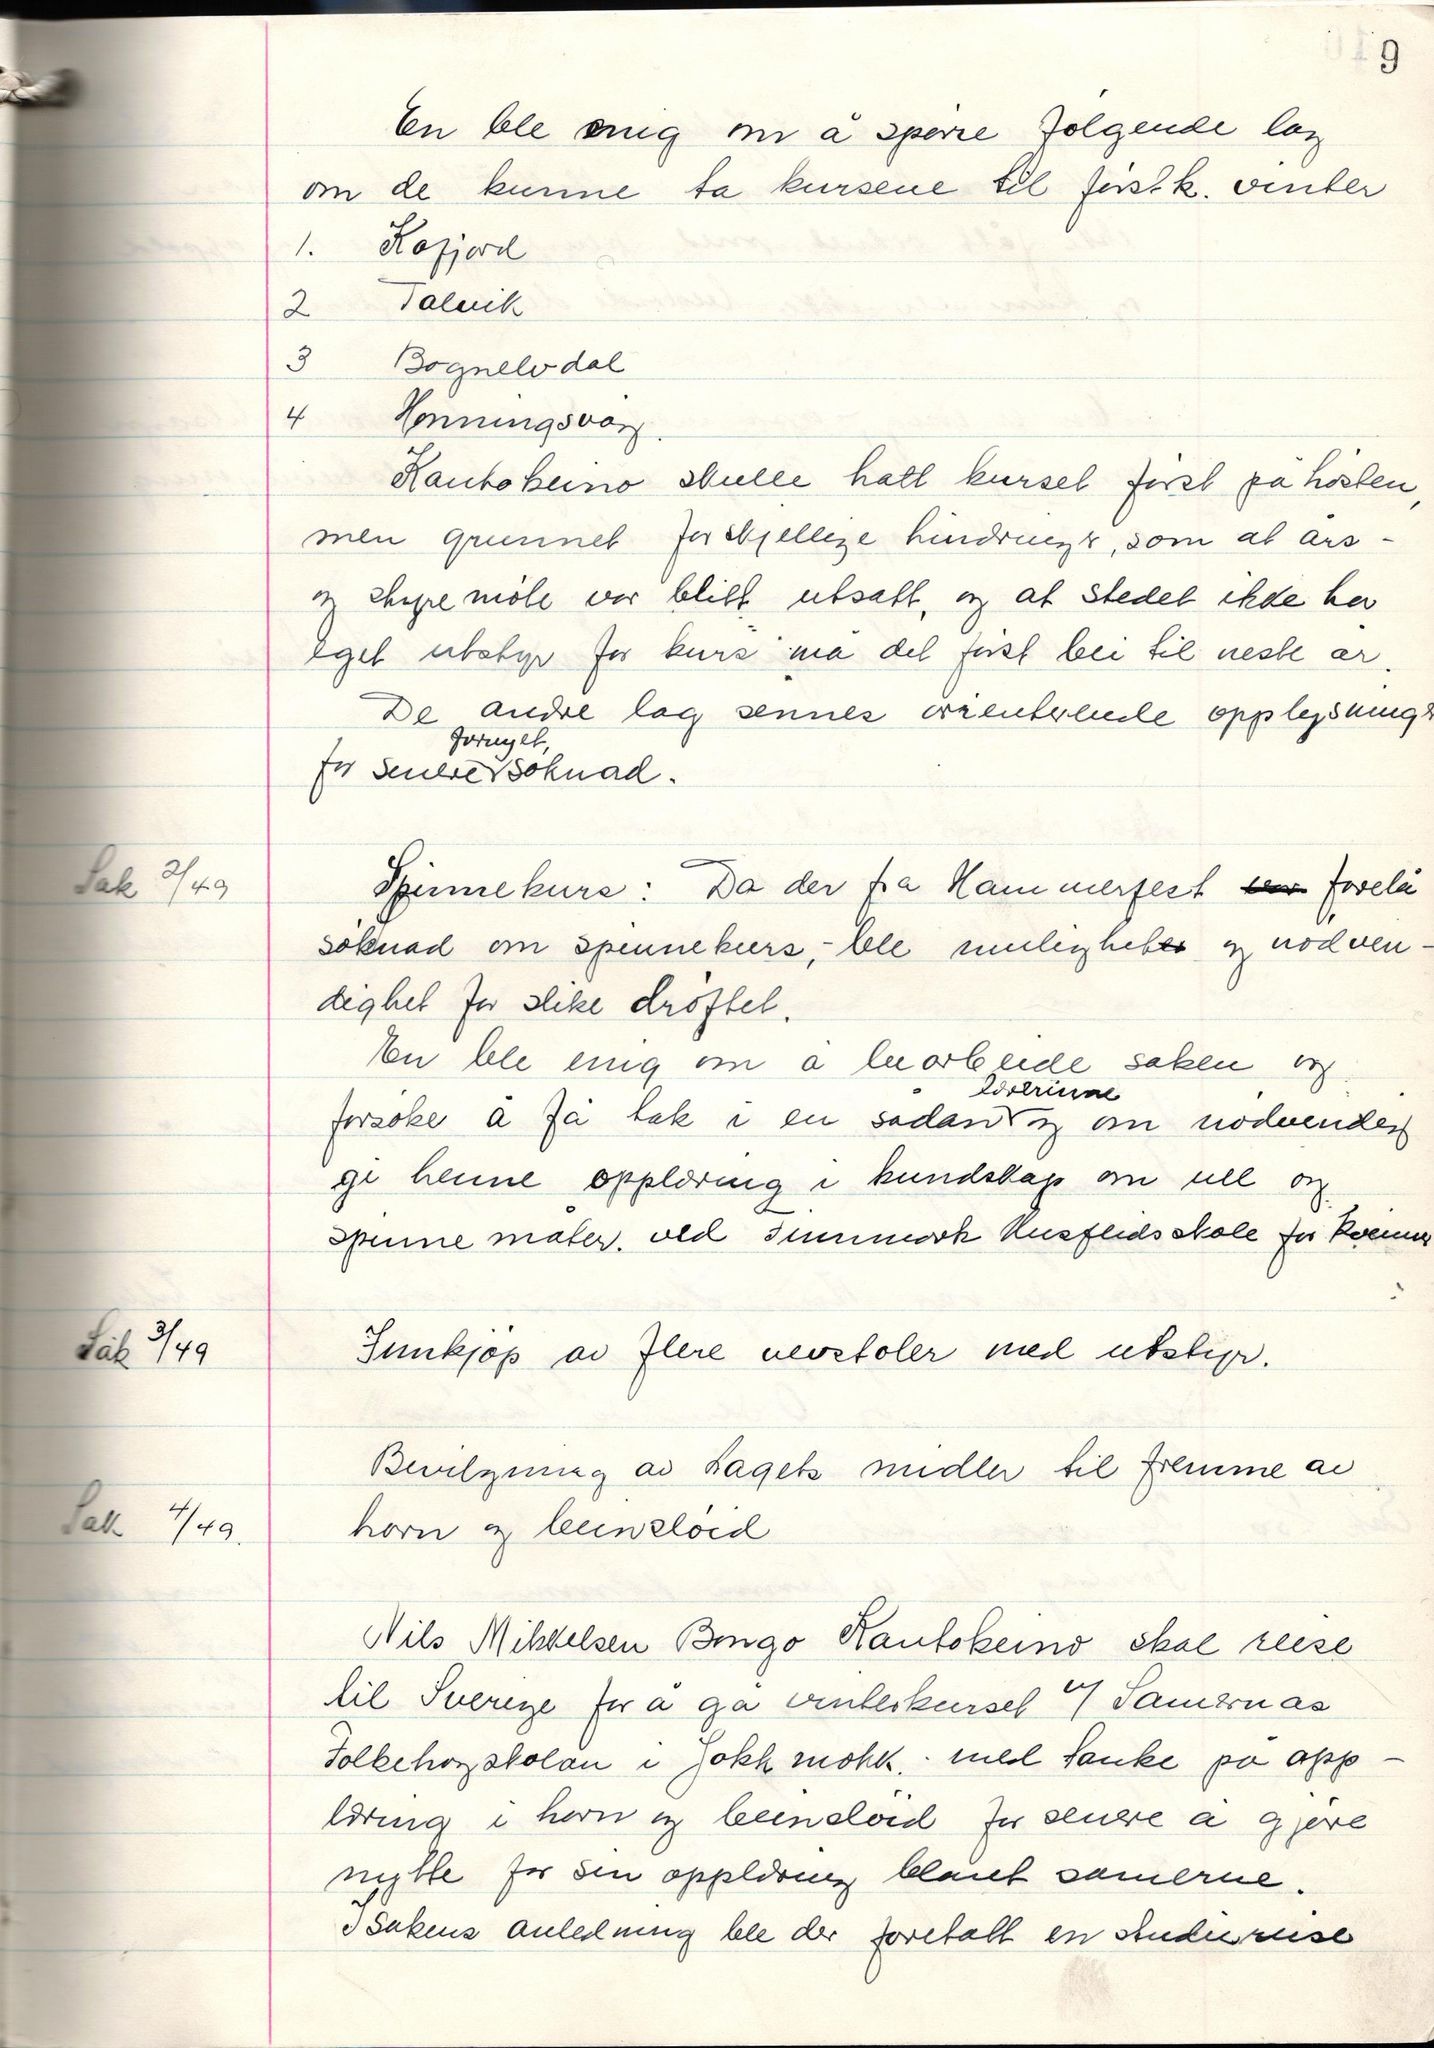 9
En ble enig om å spørre følgende lag
om de kunne ta kursene til førstk. vinter
1. Kafjord
2 Talvik
3 Bognelvdal
4 Honningsvåg.
Kautokeino skulle hatt kurset først på hösten,
men grunnet forskjellige hindringer, som at års-
og styremöte var blitt utsatt, og at stedet ikke har
eget utstyr for kurs må det först bli til neste år.
De andre lag sennes orienterende opplysninger
fornyet,
for senere söknad.
Sak 2/49 Spinnekurs: Da der fra Hammerfest forelå
söknad om spinnekurs, - ble mulighet og nödven-
dighet for slike dröftet.
En ble enig om å bearbeide saken og
lærerinne
forsöke å få tak i en sådan og om nödvendig
gi henne opplæring i kundskap om ull og
spinne måter. ved Finnmark Husflidsskole for Kvinner
Sak 3/49 Innkjöp av flere vevstoler med utstyr.
Bevilgning av Lagets midler til fremme av
Sak 4/49. horn og beinslöid
Nils Mikkelsen Bongo Kautokeino skal reise
til Sverige for å gå vinterkurset v/ Samernas
Folkehögskolan i Jokkmokk. med tanke på opp-
læring i horn og beinslöid for senere å gjöre
nytte for sin opplæring blant samerne.
I sakens anledning ble der foretatt en studiereise